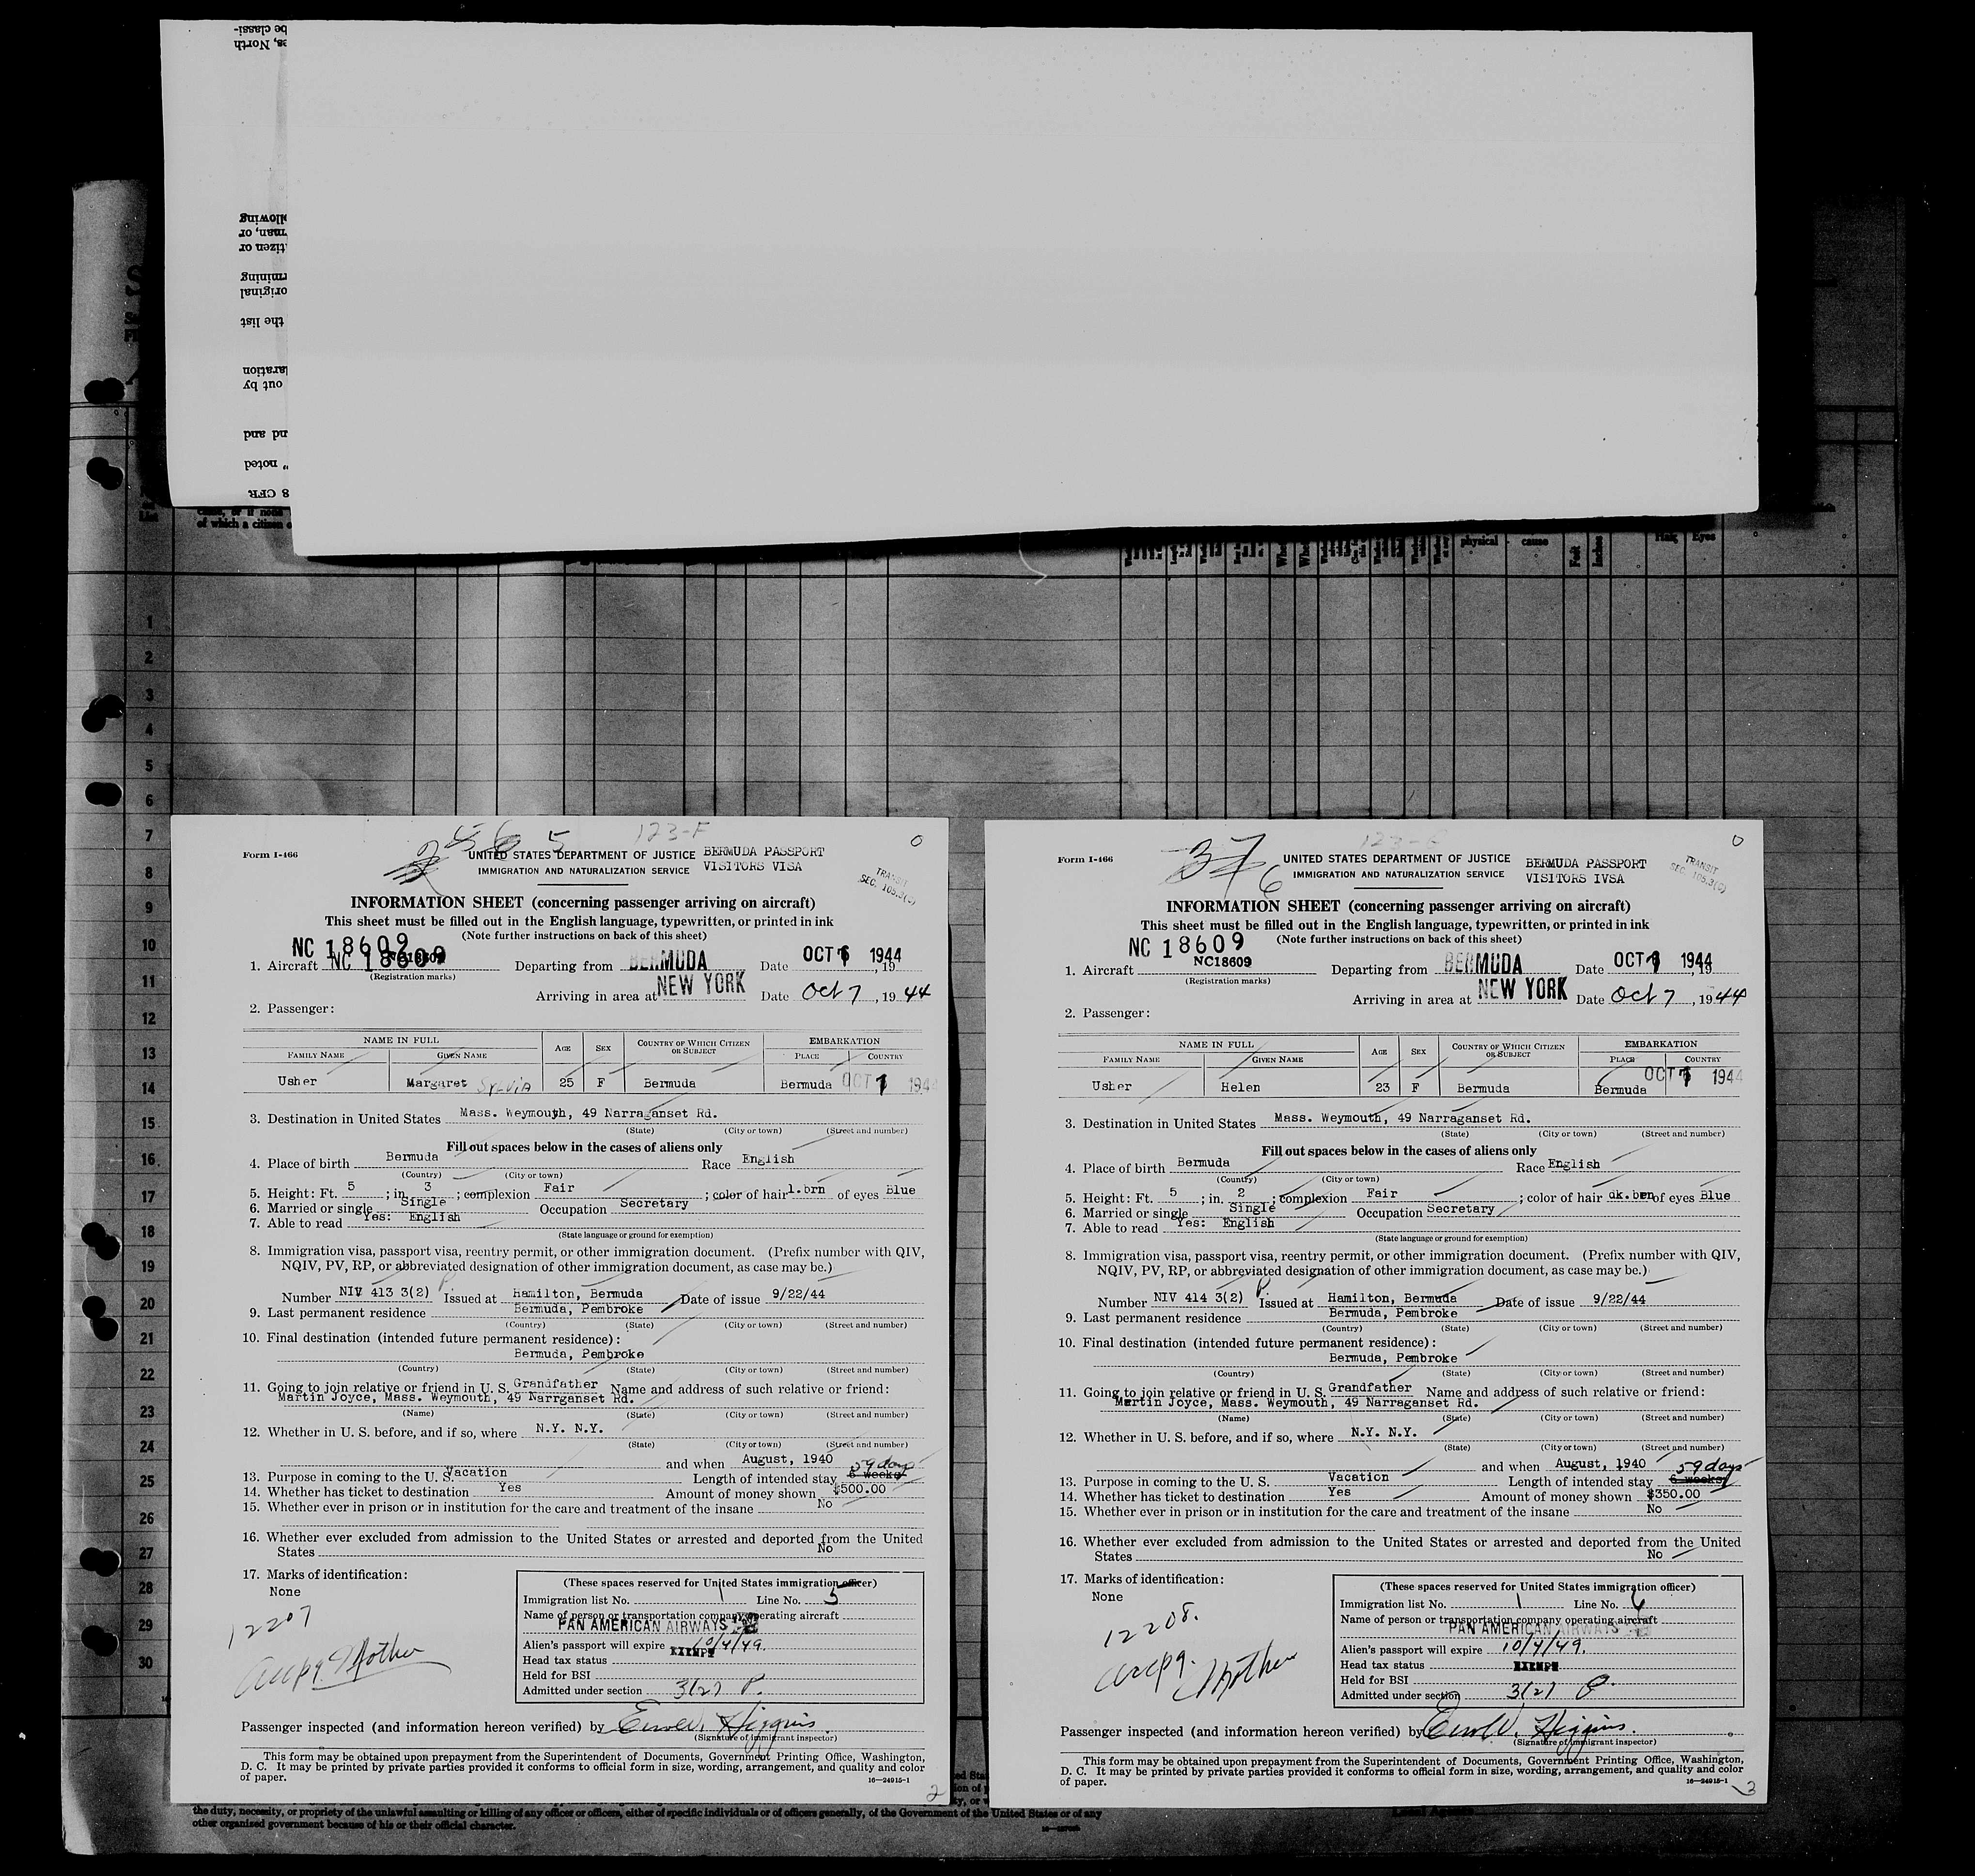 be classi-
es, North
ollowing
rman, or
tizen or
rmining
original
the list
laration
out by
nd and
" noted
8 CFR
of which a citizen o
physical cause Feet Inches Hair Eyes
1
2
3
4
5
6
7
8
9
10
11
12
13
14
15
16
17
18
19
20
21
22
23
24
25
26
27
28
29
30
5 123-F 0
Form I-466
UNITED STATES DEPARTMENT OF JUSTICE BERMUDA PASSPORT
IMMIGRATION AND NATURALIZATION SERVICE VISITORS VISA
TRANSIT
SEC. 105.3(C)
INFORMATION SHEET (concerning passenger arriving on aircraft)
This sheet must be filled out in the English language, typewritten, or printed in ink
(Note further instructions on back of this sheet)
NC 18609
1. Aircraft NC 18609 Departing from BERMUDA Date OCT 1944, 19
(Registration marks)
Arriving in area at NEW YORK Date Oct 7, 1944
2. Passenger:
NAME IN FULL AGE SEX COUNTRY OF WHICH CITIZEN OR SUBJECT EMBARKATION
FAMILY NAME GIVEN NAME PLACE COUNTRY
Usher Margaret SYLVIA 25 F Bermuda Bermuda OCT 1944
3. Destination in United States Mass. Weymouth, 49 Narraganset Rd.
(State) (City or town) (Street and number)
Fill out spaces below in the cases of aliens only
4. Place of birth Bermuda Race English
(Country) (City or town)
5. Height: Ft. 5 ; in. 3 ; complexion Fair ; color of hair l.brn of eyes Blue
6. Married or single Single Occupation Secretary
7. Able to read Yes: English
(State language or ground for exemption)
8. Immigration visa, passport visa, reentry permit, or other immigration document. (Prefix number with QIV,
NQIV, PV, RP, or abbreviated designation of other immigration document, as case may be.)
Number NIV 413 3(2) Issued at Hamilton, Bermuda Date of issue 9/22/44
9. Last permanent residence Bermuda, Pembroke
(Country) (State) (City or town) (Street and number)
10. Final destination (intended future permanent residence):
Bermuda, Pembroke
(Country) (State) (City or town) (Street and number)
11. Going to join relative or friend in U. S. Grandfather Name and address of such relative or friend:
Martin Joyce, Mass. Weymouth, 49 Narrganset Rd.
(Name) (State) (City or town) (Street and number)
12. Whether in U. S. before, and if so, where N.Y. N.Y.
(State) (City or town) (Street and number)
and when August, 1940
59 days
13. Purpose in coming to the U. S. Vacation Length of intended stay 6 weeks
14. Whether has ticket to destination Yes Amount of money shown $500.00
15. Whether ever in prison or in institution for the care and treatment of the insane No
16. Whether ever excluded from admission to the United States or arrested and deported from the United
States No
17. Marks of identification:
None
12207
accpg Mother
(These spaces reserved for United States immigration officer)
Immigration list No. 1 Line No. 5
Name of person or transportation company operating aircraft
PAN AMERICAN AIRWAYS
Alien's passport will expire 10/4/49.
Head tax status EXEMPT
Held for BSI
Admitted under section 3(2) P.
Passenger inspected (and information hereon verified) by Errol W. Higgins.
(Signature of immigrant inspector)
This form may be obtained upon prepayment from the Superintendent of Documents, Government Printing Office, Washington,
D. C. It may be printed by private parties provided it conforms to official form in size, wording, arrangement, and quality and color
of paper.
16—24915-1
2
37 6 123-F 0
Form I-466
UNITED STATES DEPARTMENT OF JUSTICE BERMUDA PASSPORT
IMMIGRATION AND NATURALIZATION SERVICE VISITORS IVSA
TRANSIT
SEC. 105.3(C)
INFORMATION SHEET (concerning passenger arriving on aircraft)
This sheet must be filled out in the English language, typewritten, or printed in ink
(Note further instructions on back of this sheet)
NC 18609
1. Aircraft NC18609 Departing from BERMUDA Date OCT 1944, 19
(Registration marks)
Arriving in area at NEW YORK Date Oct 7, 1944
2. Passenger:
NAME IN FULL AGE SEX COUNTRY OF WHICH CITIZEN OR SUBJECT EMBARKATION
FAMILY NAME GIVEN NAME PLACE COUNTRY
Usher Helen 23 F Bermuda Bermuda OCT 1944
3. Destination in United States Mass. Weymouth, 49 Narraganset Rd.
(State) (City or town) (Street and number)
Fill out spaces below in the cases of aliens only
4. Place of birth Bermuda Race English
(Country) (City or town)
5. Height: Ft. 5 ; in. 2 ; complexion Fair ; color of hair dk.brn of eyes Blue
6. Married or single Single Occupation Secretary
7. Able to read Yes: English
(State language or ground for exemption)
8. Immigration visa, passport visa, reentry permit, or other immigration document. (Prefix number with QIV,
NQIV, PV, RP, or abbreviated designation of other immigration document, as case may be.)
Number NIV 414 3(2) Issued at Hamilton, Bermuda Date of issue 9/22/44
9. Last permanent residence Bermuda, Pembroke
(Country) (State) (City or town) (Street and number)
10. Final destination (intended future permanent residence):
Bermuda, Pembroke
(Country) (State) (City or town) (Street and number)
11. Going to join relative or friend in U. S. Grandfather Name and address of such relative or friend:
Martin Joyce, Mass. Weymouth, 49 Narraganset Rd.
(Name) (State) (City or town) (Street and number)
12. Whether in U. S. before, and if so, where N.Y. N.Y.
(State) (City or town) (Street and number)
and when August, 1940
59 days
13. Purpose in coming to the U. S. Vacation Length of intended stay 6 weeks
14. Whether has ticket to destination Yes Amount of money shown $350.00
15. Whether ever in prison or in institution for the care and treatment of the insane No
16. Whether ever excluded from admission to the United States or arrested and deported from the United
States No
17. Marks of identification:
None
12208.
accpg. Mother
(These spaces reserved for United States immigration officer)
Immigration list No. 1 Line No. 6
Name of person or transportation company operating aircraft
PAN AMERICAN AIRWAYS
Alien's passport will expire 10/4/49.
Head tax status EXEMPT
Held for BSI
Admitted under section 3(2) P.
Passenger inspected (and information hereon verified) by Errol W. Higgins.
(Signature of immigrant inspector)
This form may be obtained upon prepayment from the Superintendent of Documents, Government Printing Office, Washington,
D. C. It may be printed by private parties provided it conforms to official form in size, wording, arrangement, and quality and color
of paper.
16—24915-1
3
the duty, necessity, or propriety of the unlawful assaulting or killing of any officer or officers, either of specific individuals or of officers generally, of the Government of the United States or of any
other organized government because of his or their official character.